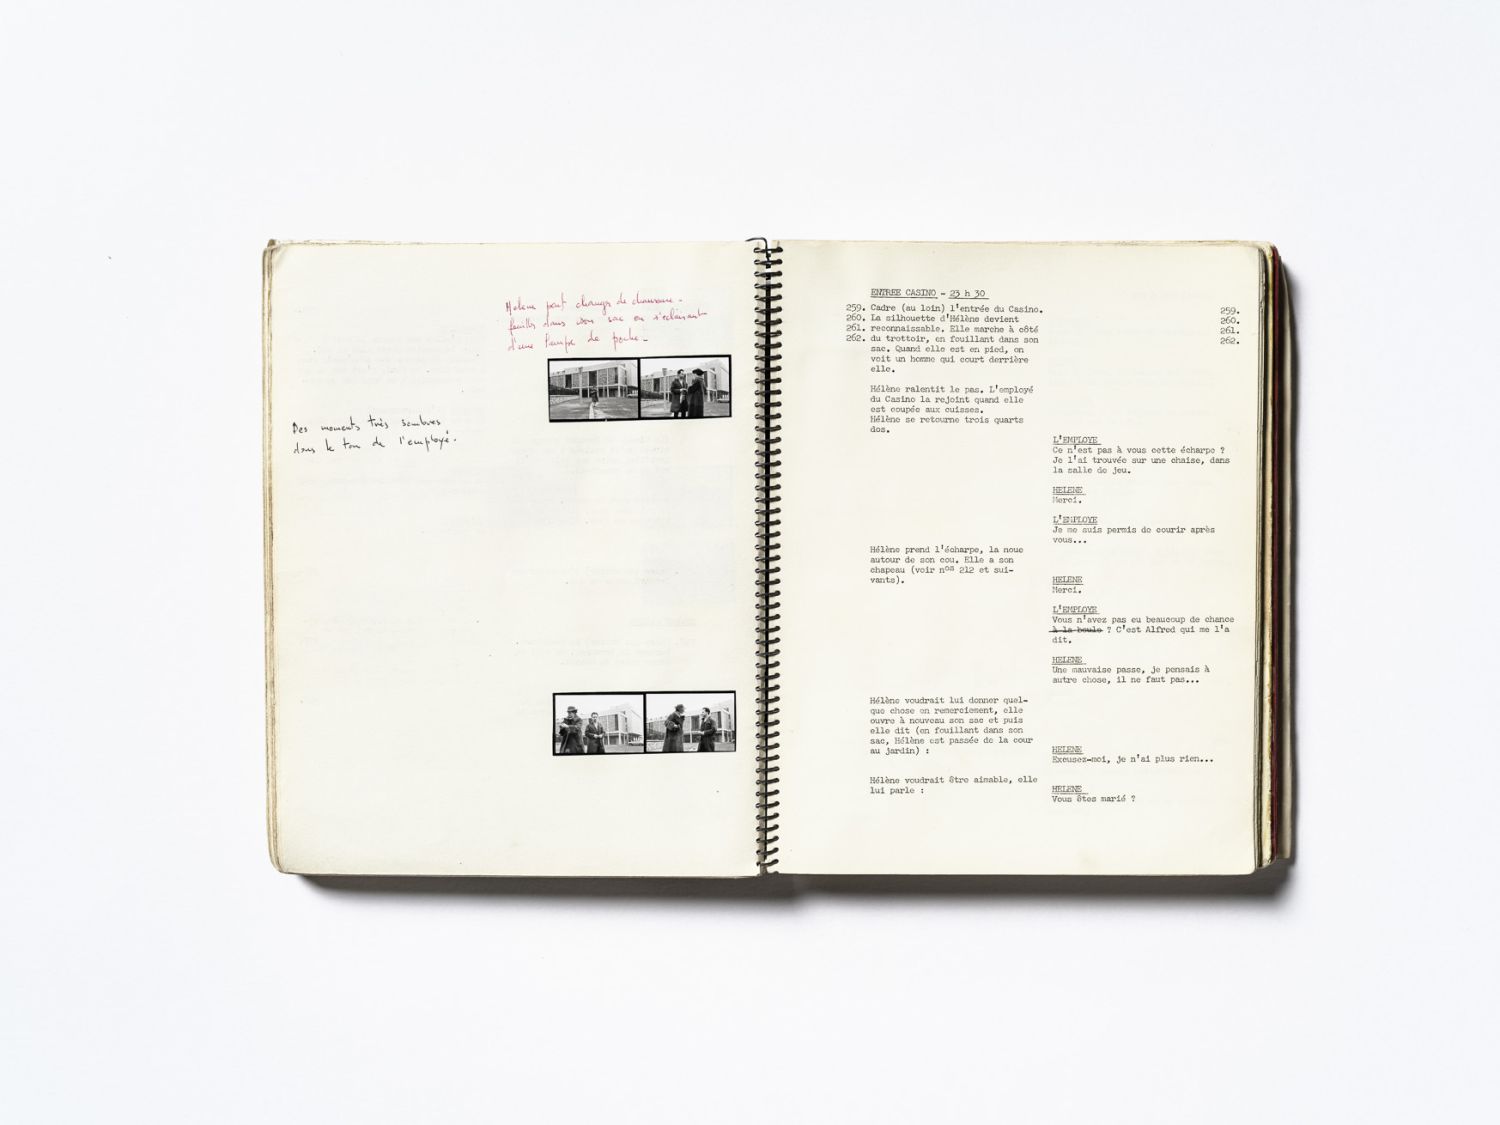 Hélène peut changer de chaussure -
fouiller dans son sac en s'éclairant
d'une lampe de poche -
Des moments très sombres
dans le ton de l'employé.
ENTREE CASINO - 23 h 30
259. Cadre (au loin) l'entrée du Casino. 259.
260. La silhouette d'Hélène devient 260.
261. reconnaissable. Elle marche à côté 261.
262. du trottoir, en fouillant dans son 262.
sac. Quand elle est en pied, on
voit un homme qui court derrière
elle.
Hélène ralentit le pas. L'employé
du Casino la rejoint quand elle
est coupée aux cuisses.
Hélène se retourne trois quarts
dos.
L'EMPLOYE
Ce n'est pas à vous cette écharpe ?
Je l'ai trouvée sur une chaise, dans
la salle de jeu.
HELENE
Merci.
L'EMPLOYE
Je me suis permis de courir après
vous...
Hélène prend l'écharpe, la noue
autour de son cou. Elle a son
chapeau (voir nos 212 et sui-
vants).
HELENE
Merci.
L'EMPLOYE
Vous n'avez pas eu beaucoup de chance
à la boule ? C'est Alfred qui me l'a
dit.
HELENE
Une mauvaise passe, je pensais à
autre chose, il ne faut pas...
Hélène voudrait lui donner quel-
que chose en remerciement, elle
ouvre à nouveau son sac et puis
elle dit (en fouillant dans son
sac, Hélène est passée de la cour
au jardin) :
HELENE
Excusez-moi, je n'ai plus rien...
Hélène voudrait être aimable, elle
lui parle :
HELENE
Vous êtes marié ?